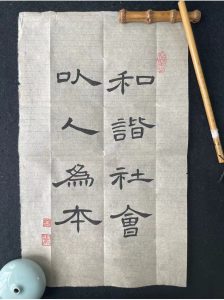 和諧社會
以人為本